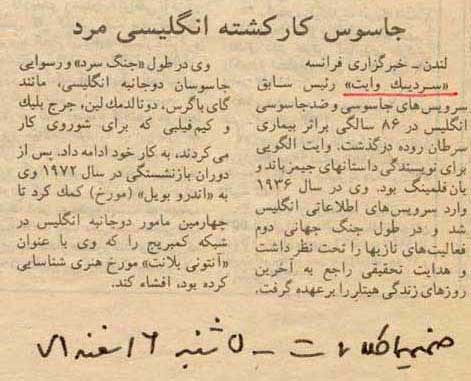 جاسوس کارکشته انگلیسی مرد
لندن ـ خبرگزاری فرانسه
«سردیک وایت» رئیس سابق
سرویس‌های جاسوسی و ضدجاسوسی
انگلیس در ۸۶ سالگی براثر بیماری
سرطان روده درگذشت. وایت الگویی
برای نویسندگی داستانهای جیمزباند و
یان فلمینگ بود. وی در سال ۱۹۳۶
وارد سرویس‌های اطلاعاتی انگلیس
شد و در طول جنگ جهانی دوم
فعالیت‌های نازیها را تحت نظر داشت
و هدایت تحقیقی راجع به آخرین
روزهای زندگی هیتلر را برعهده گرفت.
وی در طول «جنگ سرد» و رسوایی
جاسوسان دوجانبه انگلیسی، مانند
گای باگرس، دونالدمک لین، جرج بلیک
و کیم‌فیلبی که برای شوروی کار
می‌کردند، به کار خود ادامه داد. پس از
دوران بازنشستگی در سال ۱۹۷۲ وی
به «اندرو بویل» (مورخ) کمک کرد تا
چهارمین مامور دوجانبه انگلیس در
شبکه کمبریج را که وی با عنوان
«آنتونی بلانت» مورخ هنری شناسایی
کرده بود، افشاء کند.
ضمیمه اطلاعات ـ ۵ شنبه ۶ اسفند ۷۱